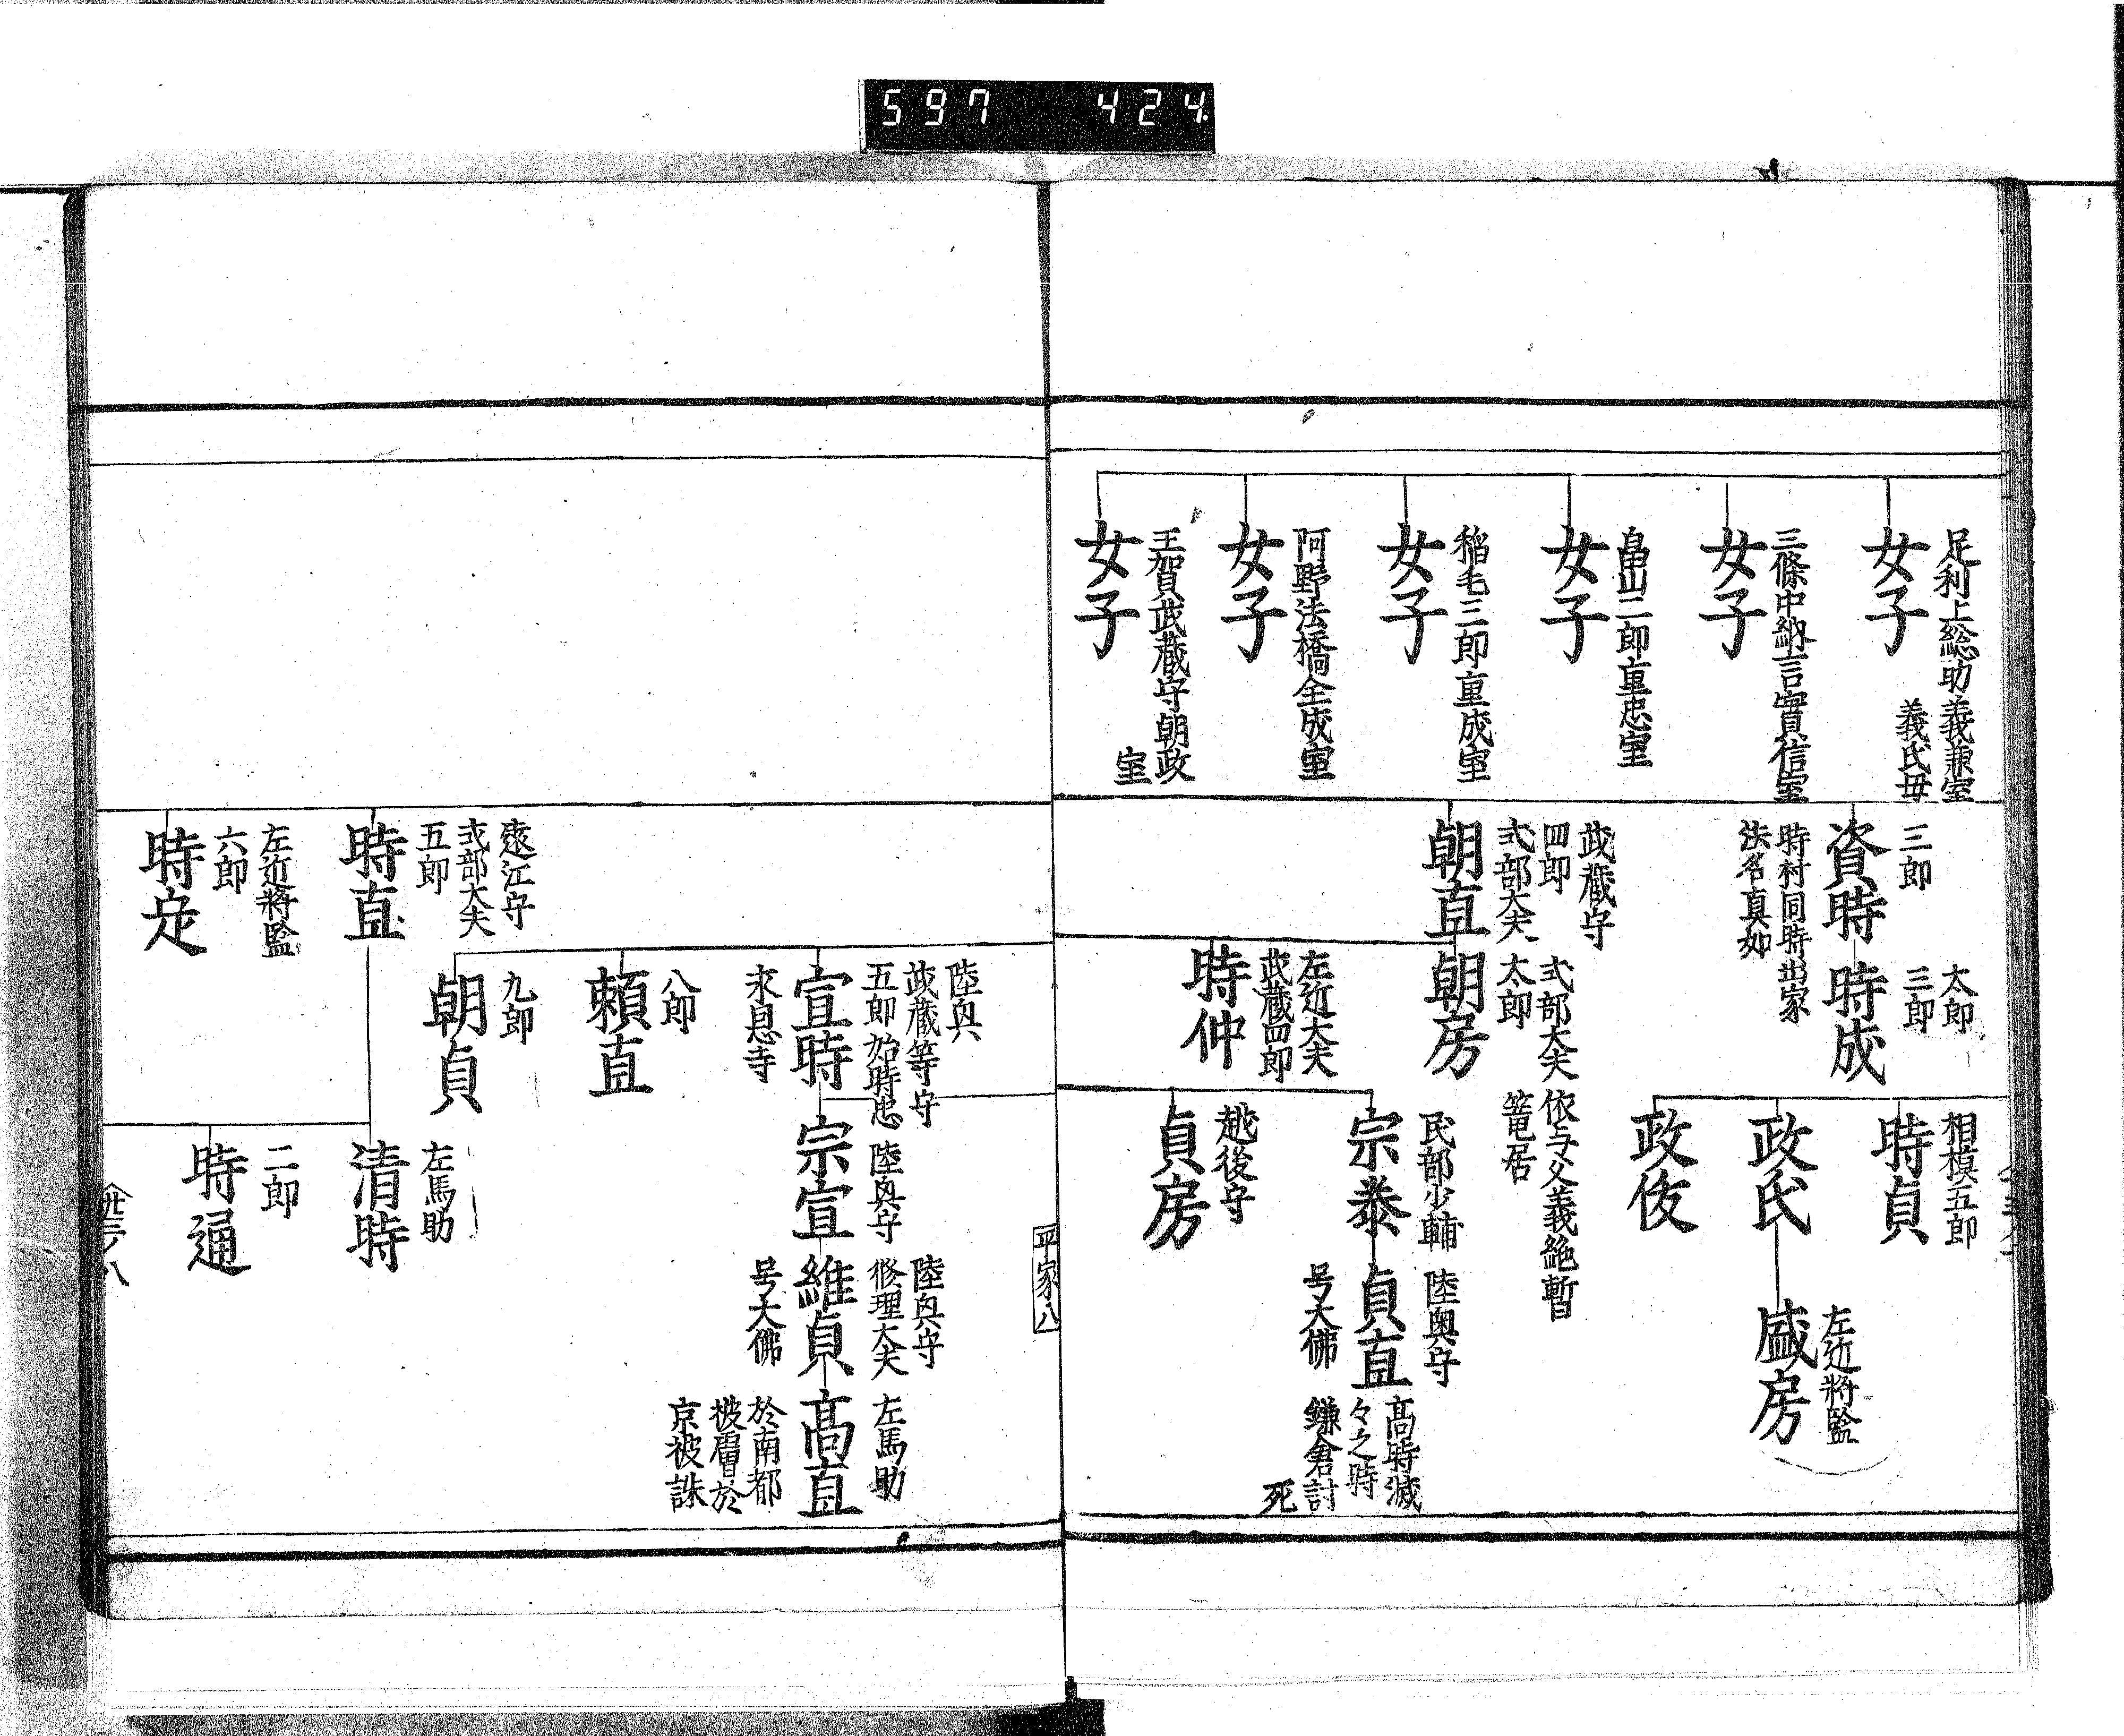 597 424
足利上総助義兼室
義氏母
女子
三條中納言實信室
女子
畠山二郎重忠室
女子
稲毛三郎重成室
女子
阿野法橋全成室
女子
王賀武藏守朝政
室
女子
三郎
資時
時村同時出家
法名真如
太郎
三郎
時成
相模五郎
時貞
政氏
左近將監
盛房
政俊
武藏守
四郎
式部大夫
朝直
式部大夫
太郎
朝房
依与父義絶暫
篭居
左近大夫
武藏四郎
時仲
民部少輔
宗泰
陸奥守
貞直
号大佛
高時滅
々之時
鎌倉討
死
越後守
貞房
平家八
陸奥
武藏等守
五郎始時忠
宣時
永忌寺
陸奥守
宗宣
陸奥守
修理大夫
維貞
号大佛
左馬助
高直
於南都
被虜於
京被誅
八郎
頼直
九郎
朝貞
遠江守
式部大夫
五郎
時直
左馬助
清時
二郎
時通
左近將監
六郎
時定